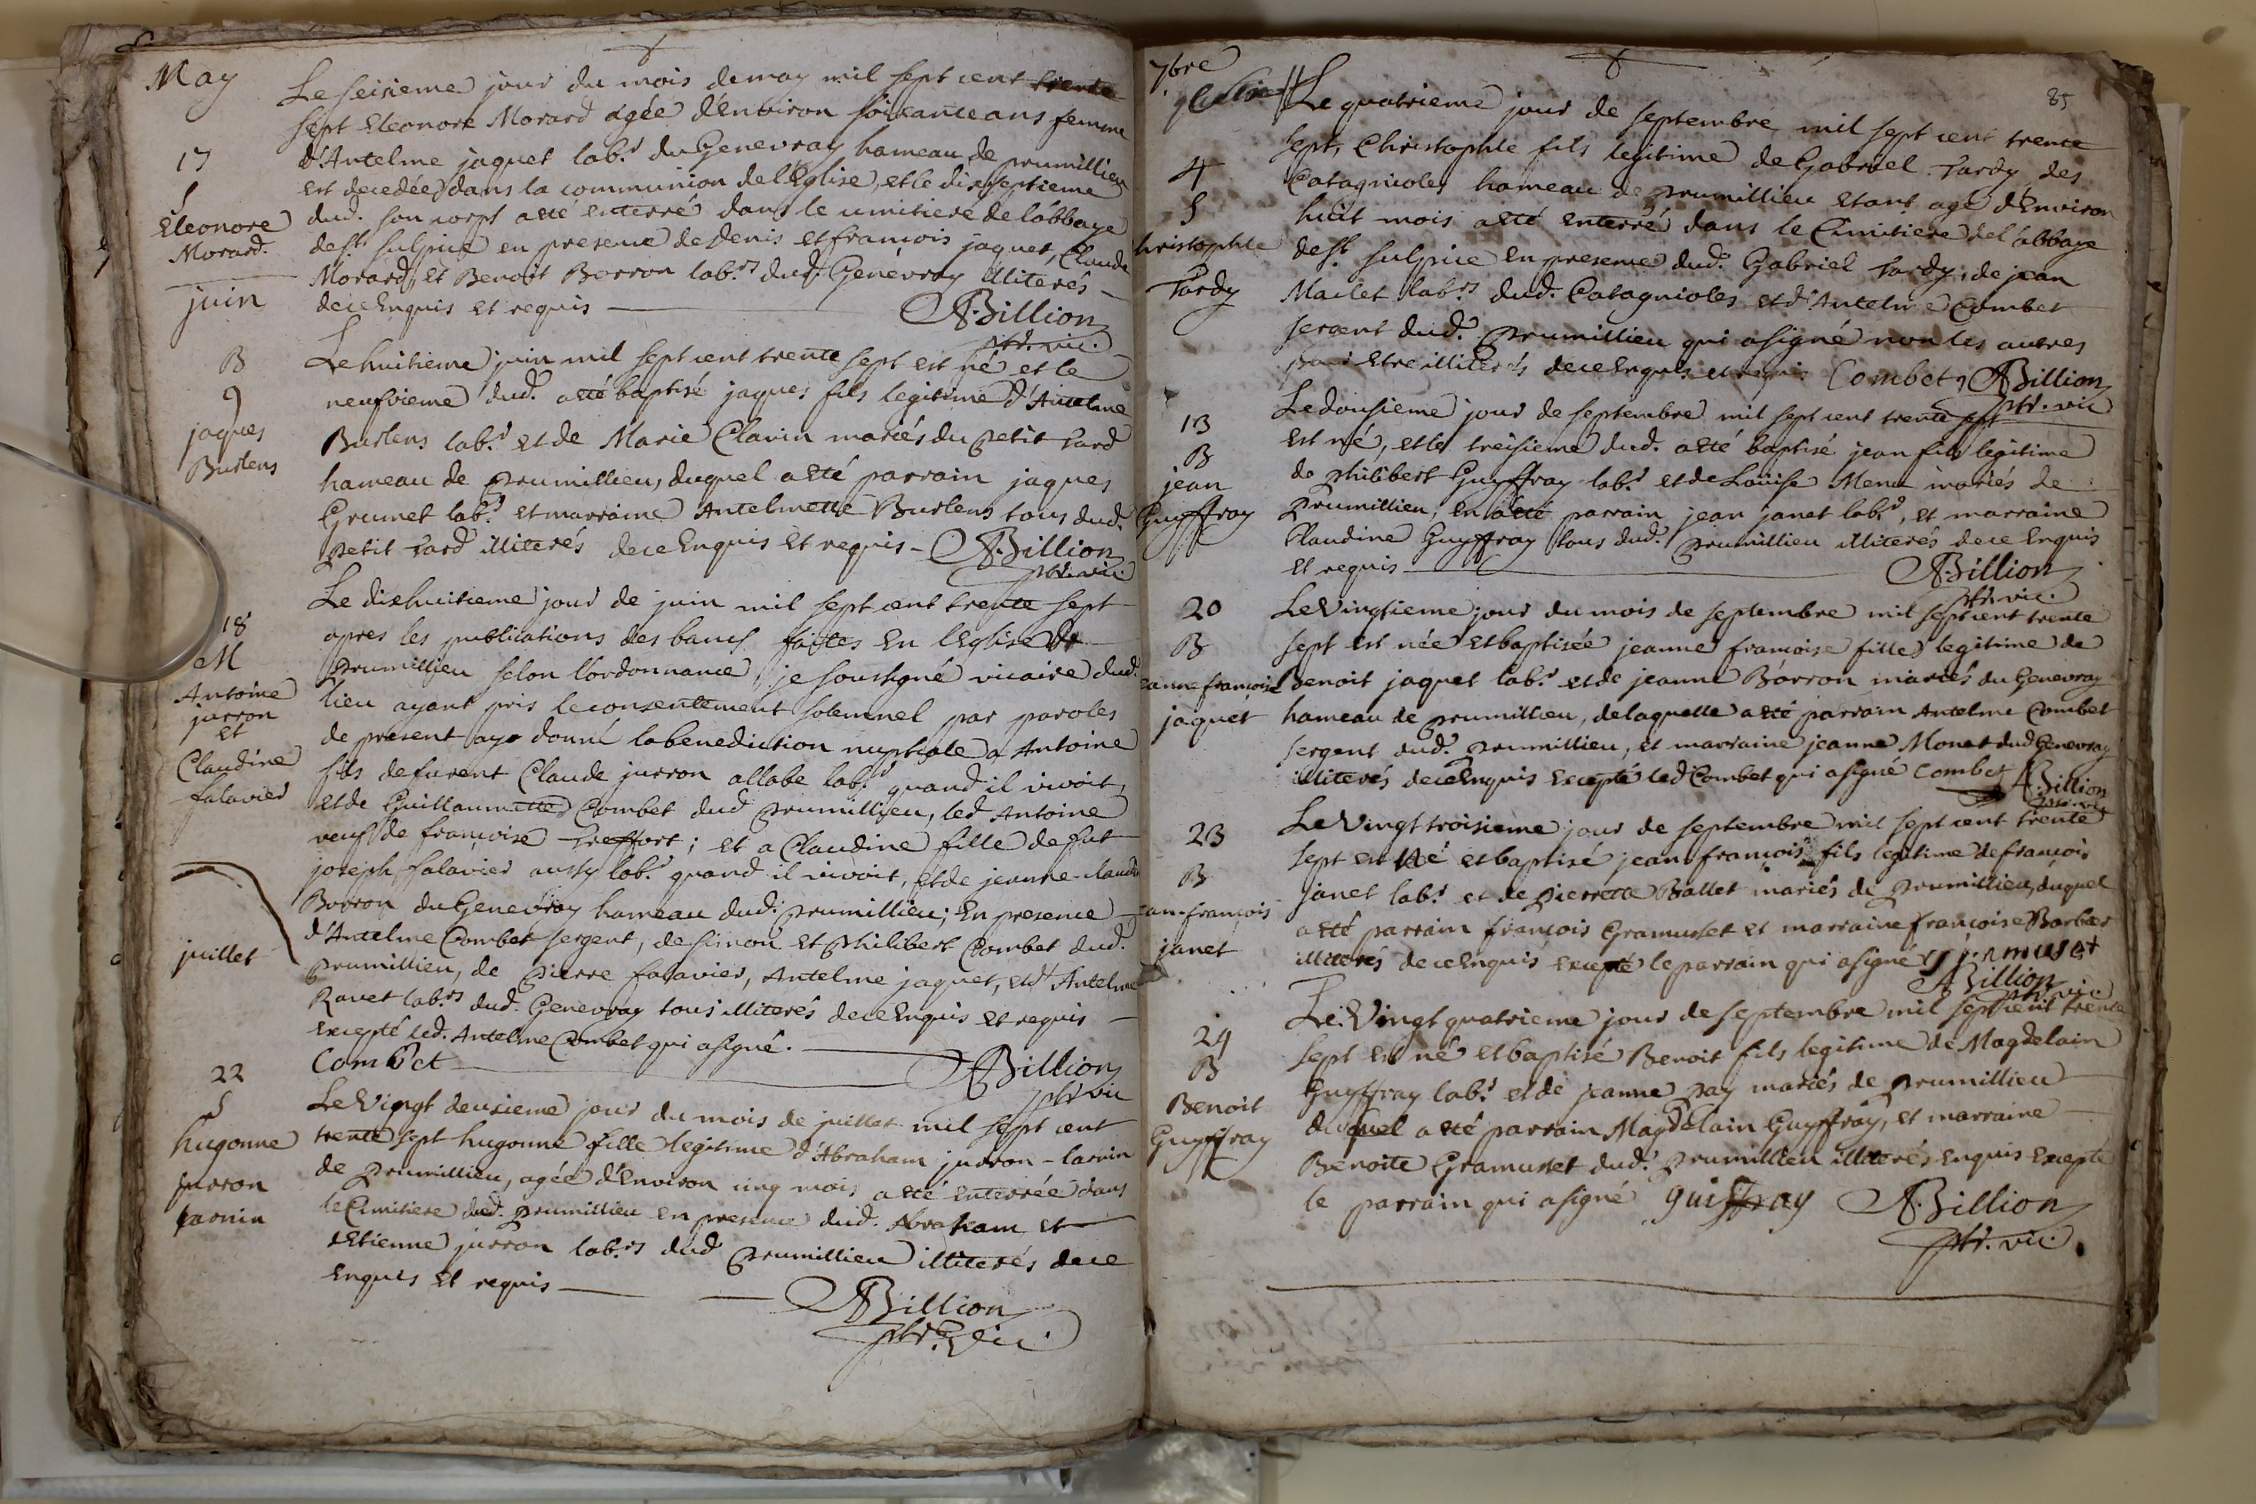 May
Le seisieme jour du mois de may mil sept cent trente
sept Eleonore Morard agée d'environ soixante ans femme
17
d'Antelme jaquet labr. du Genevray hameau de prumillieu
est decedée dans la communion de l'Eglise, et le dixseptieme
S
Eleonore
Morard.
dud. son corps a eté enterré dans le cimitiere de l'abbaye
de st. sulpice en presence de denis et françois jaquet, Claude
Morard, et Benoit Borron labrs. dud. Genevray illiterés
de ce enquis et requis
A. Billion
ptr. vic.
juin
B
9
jaques
Burlens
Le huitieme juin mil sept cent trente sept est né et le
neufvieme dud. a eté baptisé jaques fils legitime d'Antelme
Burlens labr. et de Marie Clavin mariés du petit tard
hameau de prumillieu, duquel a eté parrain jaques
Grumet labr. et marraine Antelmette Burlens tous dud.
petit tard illiterés de ce enquis et requis - A. Billion
ptr. vic.
18
M
Antoine
jurron
et
Claudine
falavier
Le dixhuitieme jour de juin mil sept cent trente sept
apres les publications des bancs faites en l'Eglise de
prumillieu selon l'ordonnance, je soussigné vicaire dud.
lieu ayant pris le consentement solemnel par paroles
de present ay donné la benediction nuptiale a Antoine
fils de furent Claude jurron allabe labr. quand il vivoit,
et de Guillaumette Combet dud prumillieu, led Antoine
veuf de françoise treffort; et a Claudine fille de fut
joseph falavier labr. quand il vivoit, et de jeanne claude
Borron du Genevray hameau dud. prumillieu; en presence
d'Antelme Combet sergent, de simon et philibert Combet dud.
prumillieu, de pierre falavier, Antelme jaquet, et d'Antelme
Ravet labrs. dud. Genevray tous illiterés de ce enquis et requis
excepté led. Antelme Combet qui a signé.
Combet A. Billion
ptr. vic
juillet
22
S
hugonne
jurron
larnin
Le Vingt deuxieme jour du mois de juillet mil sept cent
trente sept hugonne fille legitime d'Abraham jurron - larnin
de prumillieu, agée d'environ cinq mois a eté enterrée dans
le Cimitiere dud. prumillieu en presence dud. Abraham et
d'Etienne jurron labrs. dud prumillieu illiterés de ce
enquis et requis
A. Billion
ptr. vic.
7bre
85
4
S
christophle
Tardy
Le quatrieme jour de septembre mil sept cent trente
sept, Christophle fils legitime de Gabriel Tardy des
Catagnioles hameau de prumillieu etant agé d'environ
huit mois a eté enterré dans le Cimitiere de l'abbaye
de st. sulpice en presence dud. Gabriel Tardy, de jean
Maclet labrs. dud. Catagnioles et d'Antelme Combet
sergent dud. prumillieu qui a signé non les autres
pour etre illiterés de ce enquis et requis Combet, A. Billion
ptr. vic
13
B
jean
Guyffray
Le dousieme jour de septembre mil sept cent trente sept
est né, et le treisieme dud. a eté baptisé jean fils legitime
de philibert Guyffray labr. et de Louise Mena mariés de
prumillieu, en a eté parrain jean janet labr., et marraine
Claudine Guyffray tous dud. prumillieu illiterés de ce enquis
et requis A. Billion
ptr. vic.
20
B
jeanne françoise
jaquet
Le Vingtieme jour du mois de septembre mil sept cent trente
sept est née et baptisée jeanne françoise fille legitime de
Benoit jaquet labr. et de jeanne Borron mariés du Genevray
hameau de prumillieu, de laquelle a eté parrain Antelme Combet
sergent dud. prumillieu, et marraine jeanne Monet dud Genevray
illiterés de ce enquis excepté led Combet qui a signé Combet A. Billion
ptr. vic
23
B
jean-françois
janet
Le Vingt troisieme jour de septembre mil sept cent trente
sept est né et baptisé jean françois fils legitime de françois
janet labr. et de pierrette Ballet mariés de prumillieu, duquel
a eté parrain françois Gramusset et marraine françoise Barbier
illiterés de ce enquis excepté le parrain qui a signé
A. Billion
ptr. vic
24
B
Benoit
Guyffray
Le Vingt quatrieme jour de septembre mil sept cent trente
sept est né et baptisé Benoit fils legitime de Magdelain
Guyffray labr. et de jeanne pay mariés de prumillieu
duquel a eté parrain Magdelain Guyffray, et marraine
Benoite Gramusset dud. prumillieu illiterés enquis excepté
le parrain qui a signé guiffray A. Billion
ptr. vic.